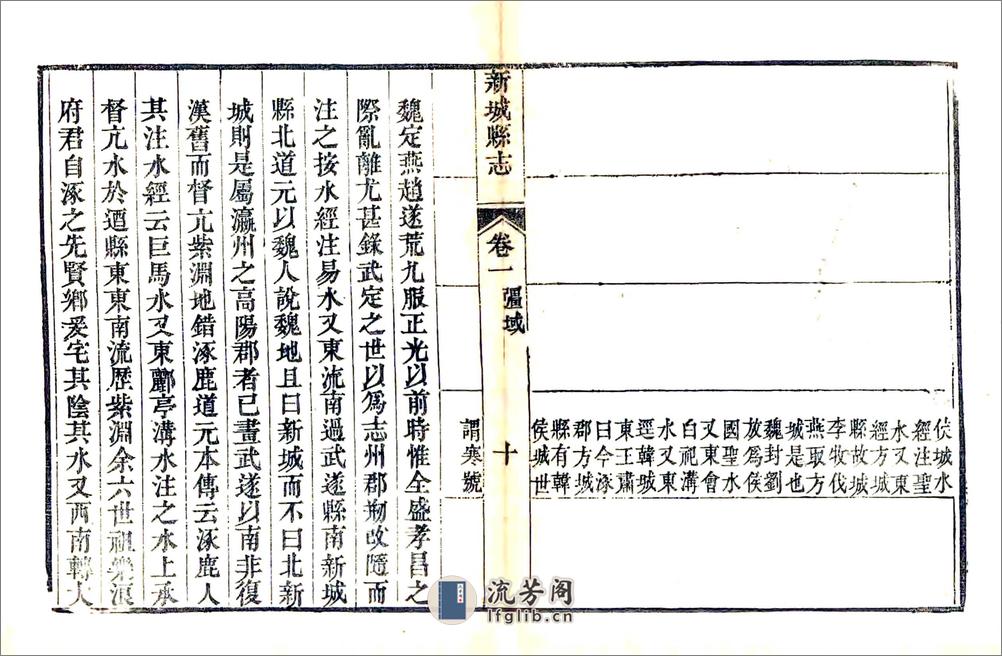 侯城水
經注聖
水又東
經方城
縣故城
李牧伐
燕取方
城是也
魏封劉
放爲侯
國聖水
又東會
白祀溝
水又東
逕韓城
東王肅
曰今涿
郡方城
縣有韓
侯城世
新城縣志 卷一 疆域 十
謂寒號
魏定燕趙遂荒九服正光以前時惟全盛孝昌之
際亂離尤甚錄武定之世以爲志州郡剏改隨而
注之按水經注易水又東流南過武遂縣南新城
縣北道元以魏人說魏地且曰新城而不曰北新
城則是屬瀛州之高陽郡者已畫武遂以南非復
漢舊而督亢紫淵地錯涿鹿道元本傳云涿鹿人
其注水經云巨馬水又東酈亭溝水注之水上承
督亢水於遒縣東東南流歷紫淵余六世祖樂浪
府君自涿之先賢鄉爰宅其陰其水又西南轉大
流芳阁
lfglib.cn